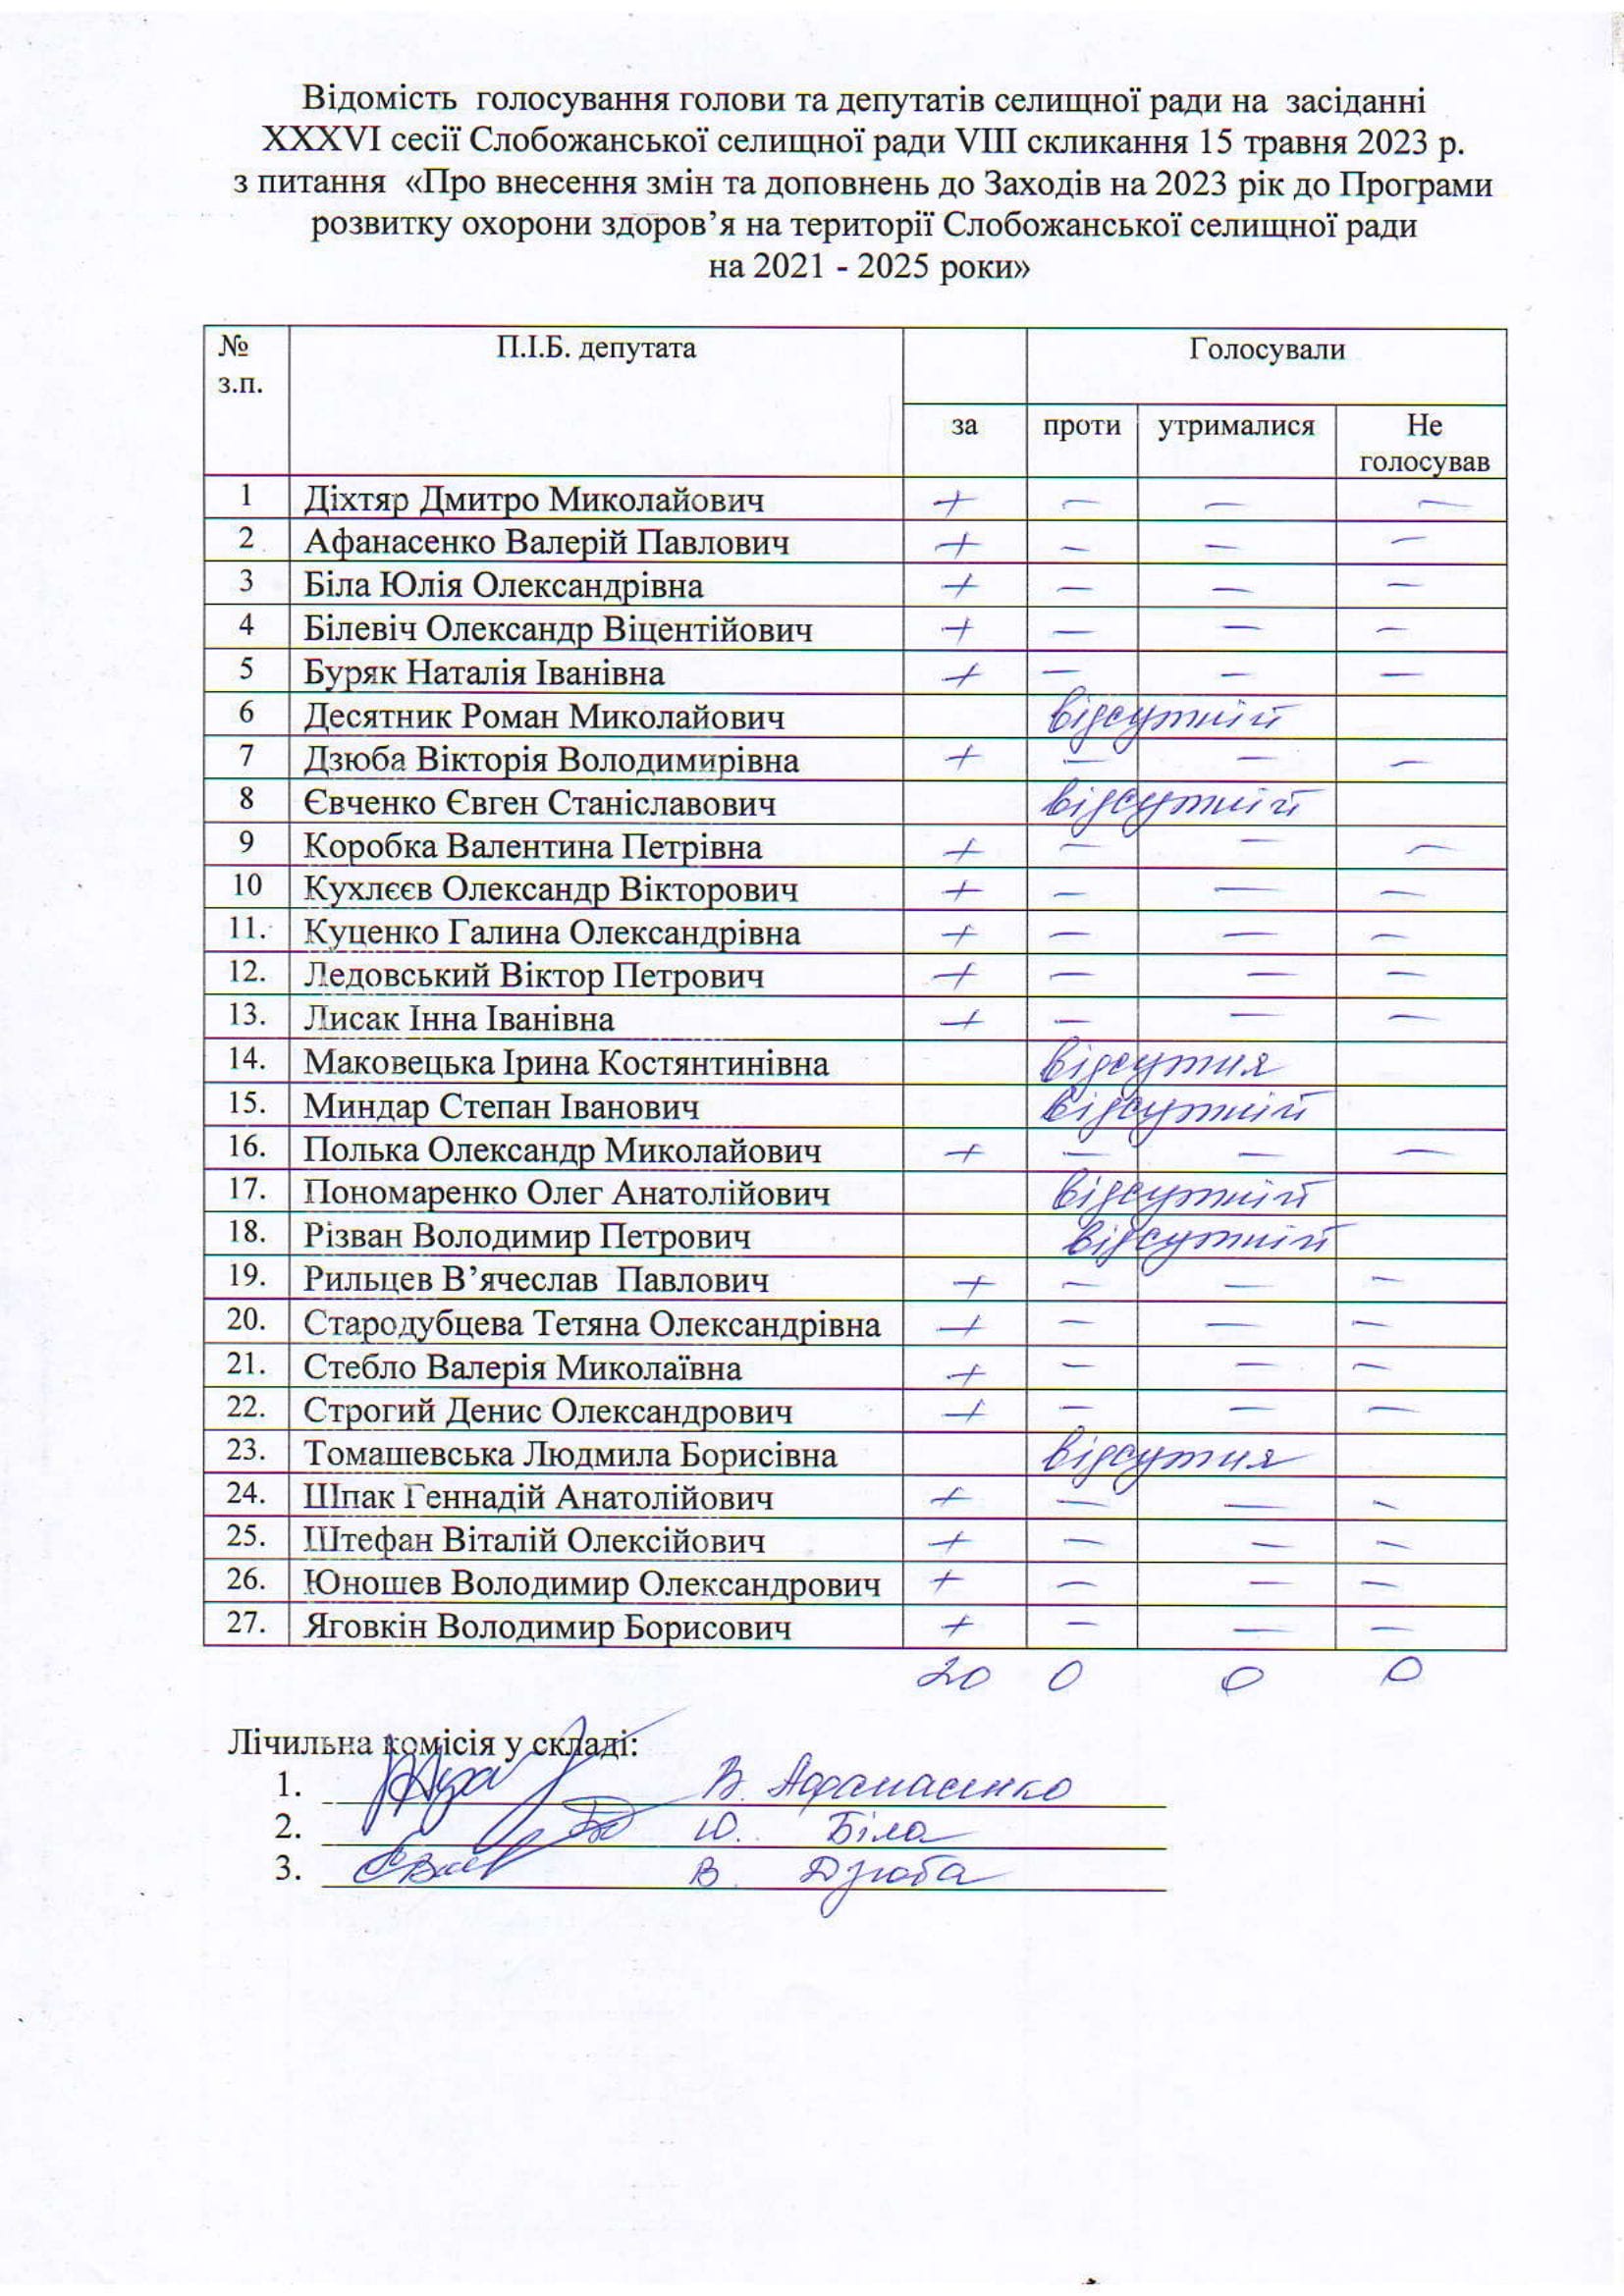 Відомість голосування голови та депутатів селищної ради на засіданні
XXXVI сесії Слобожанської селищної ради VIII скликання 15 травня 2023 р.
з питання «Про внесення змін та доповнень до Заходів на 2023 рік до Програми
розвитку охорони здоров’я на території Слобожанської селищної ради
на 2021 - 2025 роки»
№ з.п. П.І.Б. депутата Голосували
за проти утрималися Не голосував
1 Діхтяр Дмитро Миколайович + — — —
2 Афанасенко Валерій Павлович + — — —
3 Біла Юлія Олександрівна + — — —
4 Білевіч Олександр Віцентійович + — — —
5 Буряк Наталія Іванівна + — — —
6 Десятник Роман Миколайович відсутній
7 Дзюба Вікторія Володимирівна + — — —
8 Євченко Євген Станіславович відсутній
9 Коробка Валентина Петрівна + — — —
10 Кухлєєв Олександр Вікторович + — — —
11. Куценко Галина Олександрівна + — — —
12. Ледовський Віктор Петрович + — — —
13. Лисак Інна Іванівна + — — —
14. Маковецька Ірина Костянтинівна відсутня
15. Миндар Степан Іванович відсутній
16. Полька Олександр Миколайович + — — —
17. Пономаренко Олег Анатолійович відсутній
18. Різван Володимир Петрович відсутній
19. Рильцев В’ячеслав Павлович + — — —
20. Стародубцева Тетяна Олександрівна + — — —
21. Стебло Валерія Миколаївна + — — —
22. Строгий Денис Олександрович + — — —
23. Томашевська Людмила Борисівна відсутня
24. Шпак Геннадій Анатолійович + — — —
25. Штефан Віталій Олексійович + — — —
26. Юношев Володимир Олександрович + — — —
27. Яговкін Володимир Борисович + — — —
20 0 0 0
Лічильна комісія у складі:
1. В. Афанасенко
2. Ю. Біла
3. В. Дзюба